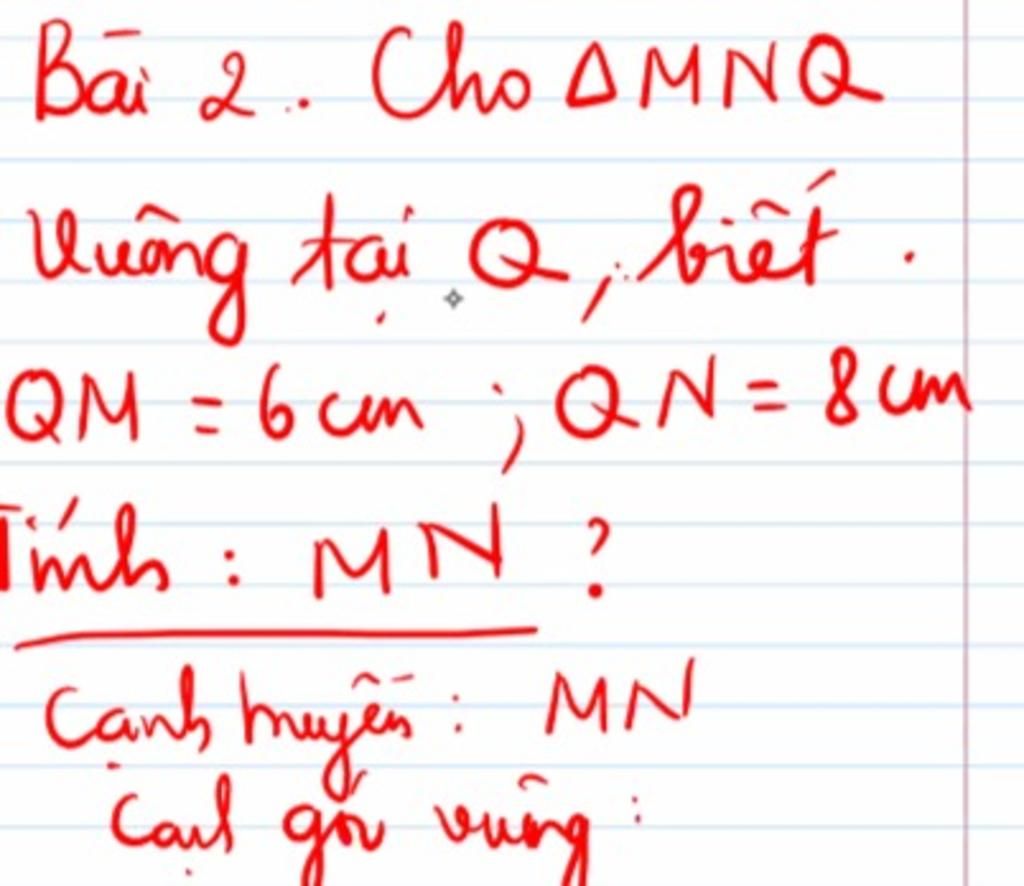 Bài 2. Cho Δ MNQ
Vuông tại Q, biết.
QM = 6 cm ; QN = 8 cm
Tính : MN ?
Cạnh huyền : MN
Cạnh góc vuông :